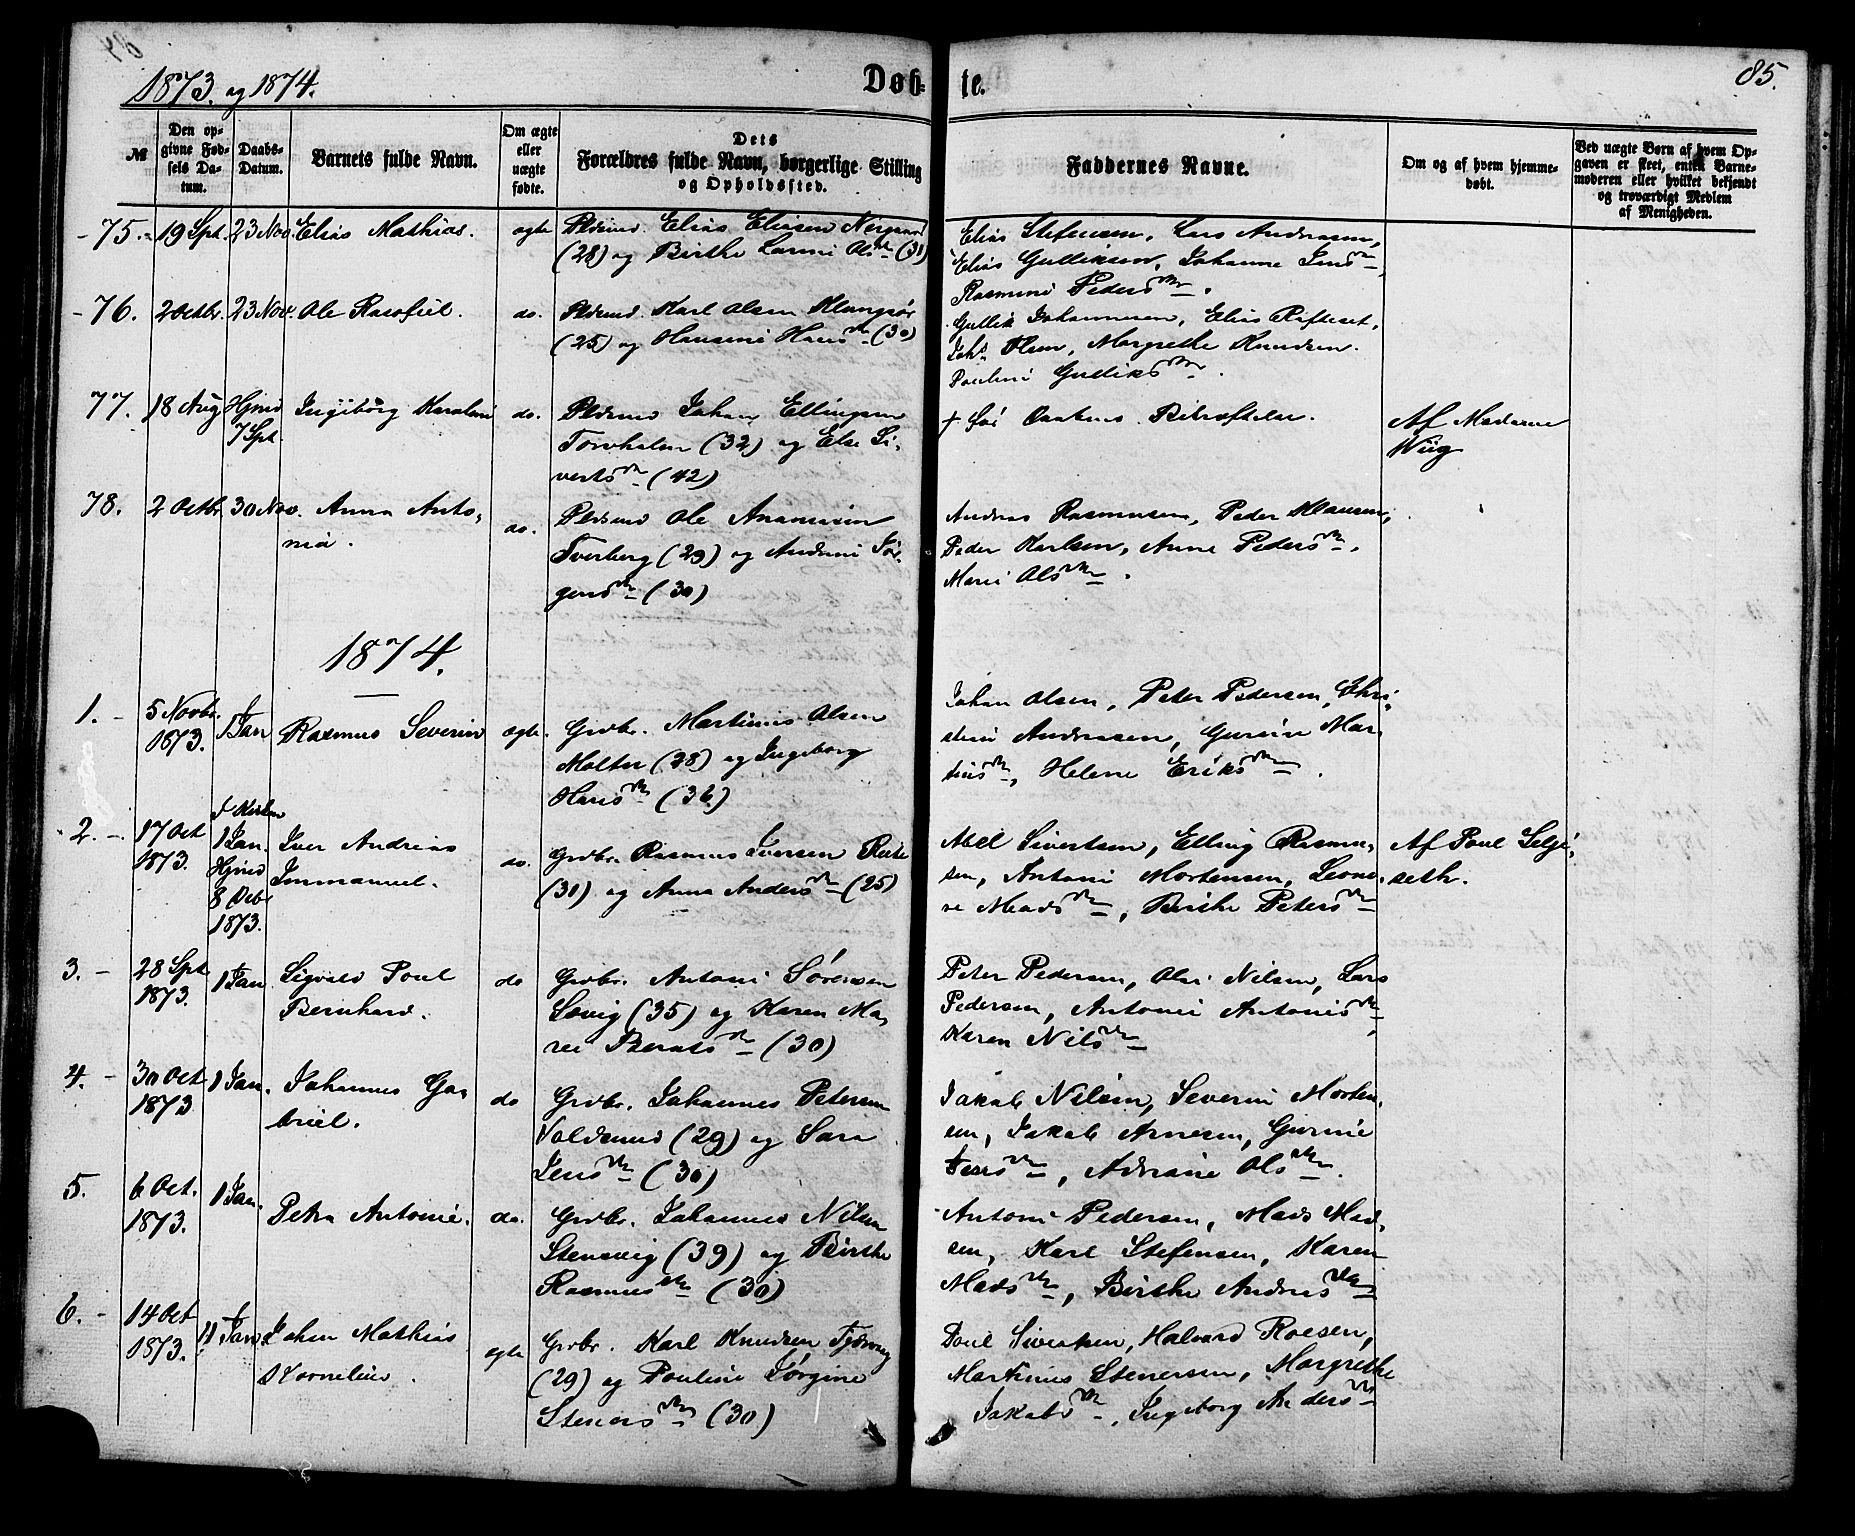 1873. og 1874.
Døb-
te.
85.
№
Den op-
givne Fød-
sels Da-
tum.
Daabs-
Datum.
Barnets fulde Navn.
Om ægte
eller
uægte
fødte.
Dets
Forældres fulde Navn, borgerlige Stilling
og Opholdssted.
Faddernes Navne.
Om og af hvem hjemme-
døbt.
Ved uægte Børn af hvem Op-
gaven er skeet, enten Barne-
moderen eller hvilket bekjendt
og troværdigt Medlem
af Menigheden.
75. 19 Spt. 23 Nov. Elias Mathias. ægte Pldsmd. Elias Eliasen
(28) og Birthe Larine Olsdtr (31)
Elias Stefensen, Lars Andreasen,
Elias Gulliksen, Johanne Jensdtr
Rasmine Pedersdtr.
76. 2 Octbr. 23 Nov. Ole do. Pldsmd Karl Olsen
(25) og Hansine Hansdtr (30)
Gullik Johannesen, Elias
Johs Olsen, Margrethe Knudsen.
Pauline Gulliksdtr.
77. 18 Aug Hjmd
7 Spt.
Ingibörg Karoline do. Pldsmd Johan Ellingsen
(32) og Else Si-
vertsdtr (42)
† før Daabens Bekræftelse.
Af Madame
Wiig
78. 2 Octbr. 30 Nov. Anna Anto-
nia.
do. Pldsmd Ole
(29) og Andrine Jør-
gensdtr (30)
Andreas Rasmussen, Peder Klausen,
Peder Karlsen, Anne Pedersdtr,
Marie Olsdtr.
1874.
1. 5 Novbr.
1873.
1 Jan Rasmus Severin ægte. Grdbr. Martinus Olsen
(28) og Ingeborg
Hansdtr (36)
Johan Olsen, Peter Pedersen, Chri-
stian Andreasen, Gurine Mar-
tinsdtr, Helene Eriksdtr.
2. 17 Oct
1873.
i Kirken
1 Jan.
Hjmd
8 Decbr
1873.
Iver Andreas
Immanuel.
do. Grdbr. Rasmus Iversen
(30) og Anna Andersdtr (25)
Abel Sivertsen, Elling Rasmus-
sen, Antoni Mortensen, Leono-
re Madsdtr, Birthe Petersdtr
Af Poul Selje-
seth.
3. 28 Spt
1873.
1 Jan Sigvald Poul
Bernhard.
do Grdbr. Antoni Sørensen
(35) og Karen Ma-
rie Berntsdtr (30)
Peter Pedersen, Ole Nilsen, Lars
Pedersen, Antonie Antonisdtr,
Karen Nilsdtr
4. 30 Oct
1873
1 Jan. Johannes Ga-
briel.
do Grdbr. Johannes Petersen
Voldsund (29) og Sara
Jensdtr (30)
Jakob Nilsen, Severin Morten-
sen, Jakob Arnesen, Gurine
Jensdtr, Adriane Olsdtr.
5. 6 Oct.
1873.
1 Jan. Petra Antonie. do. Grdbr. Johannes Nilsen
Stensvig (39) og Birthe
Rasmusdtr (30)
Antoni Pedersen, Mads Mad-
sen, Karl Stefensen, Karen
Madsdtr, Birthe Andersdtr
6. 14 Oct
1873.
11 Jan Johan Mathias
Kornelius.
ægte Grdbr. Karl Knudsen
(29) og Pauline Jørgine
Stenersdtr (30)
Poul Sivertsen, Halvard Roesen,
Martinus Stenersen, Margrethe
Jakobsdtr, Ingeborg Andersdtr